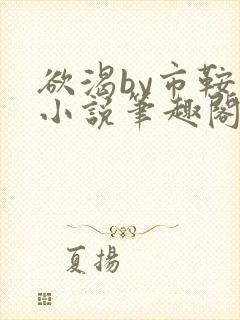 欲渴by市鞍
小説筆趣閣
夏揚